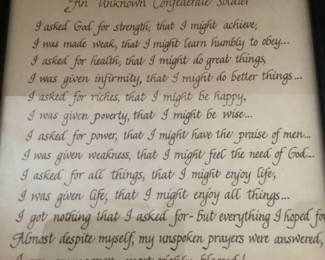 An Unknown Confederate Soldier
I asked God for strength, that I might achieve,
I was made weak, that I might learn humbly to obey...
I asked for health, that I might do great things,
I was given infirmity, that I might do better things...
I asked for riches, that I might be happy,
I was given poverty, that I might be wise...
I asked for power, that I might have the praise of men...
I was given weakness, that I might feel the need of God...
I asked for all things, that I might enjoy life,
I was given life, that I might enjoy all things...
I got nothing that I asked for - but everything I hoped fo
Almost despite myself, my unspoken prayers were answered,